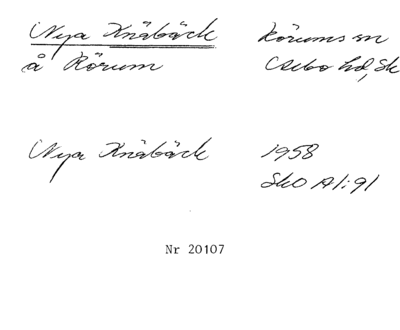 Nya Knäbäck Rörums sn
å Rörum Albo hd, Sk
Nya Knäbäck 1958
SkO A1:91
Nr 20107